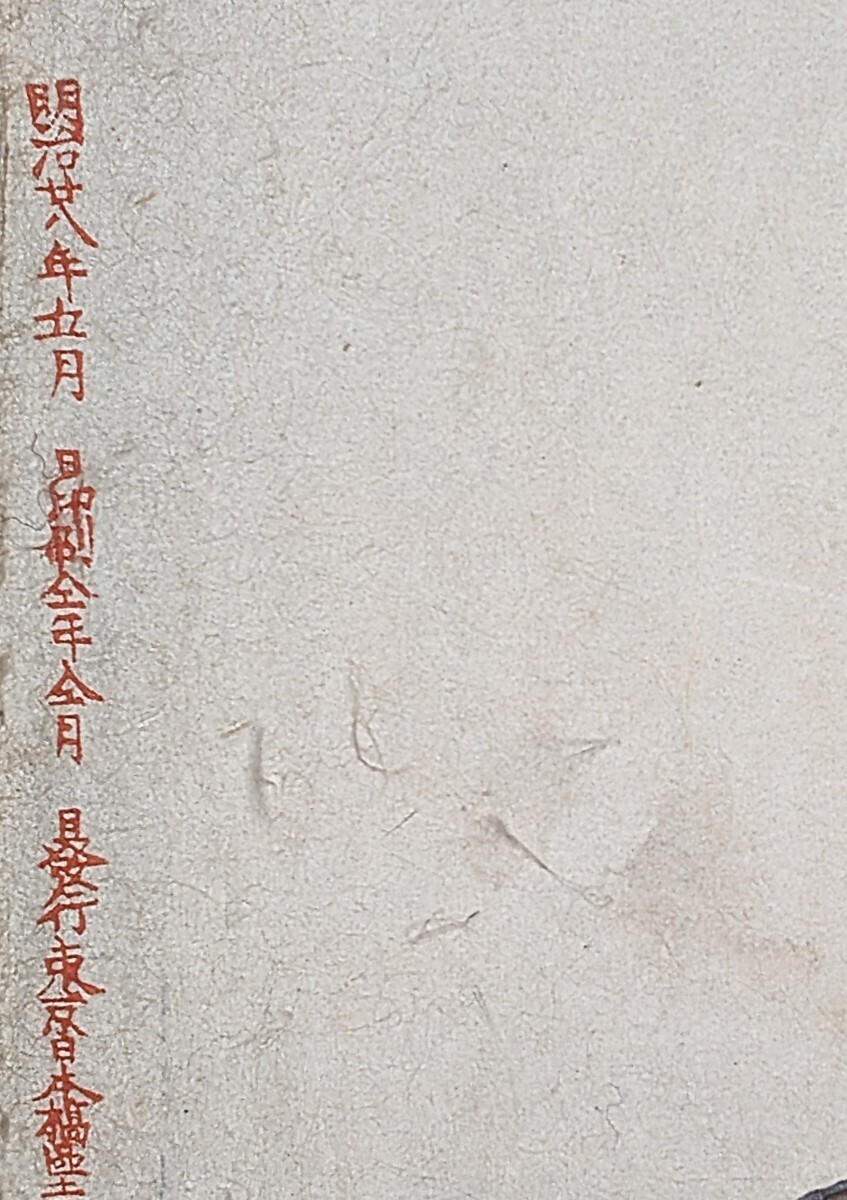 明治廿八年五月　日印刷仝年仝月　日發行東京日本橋區